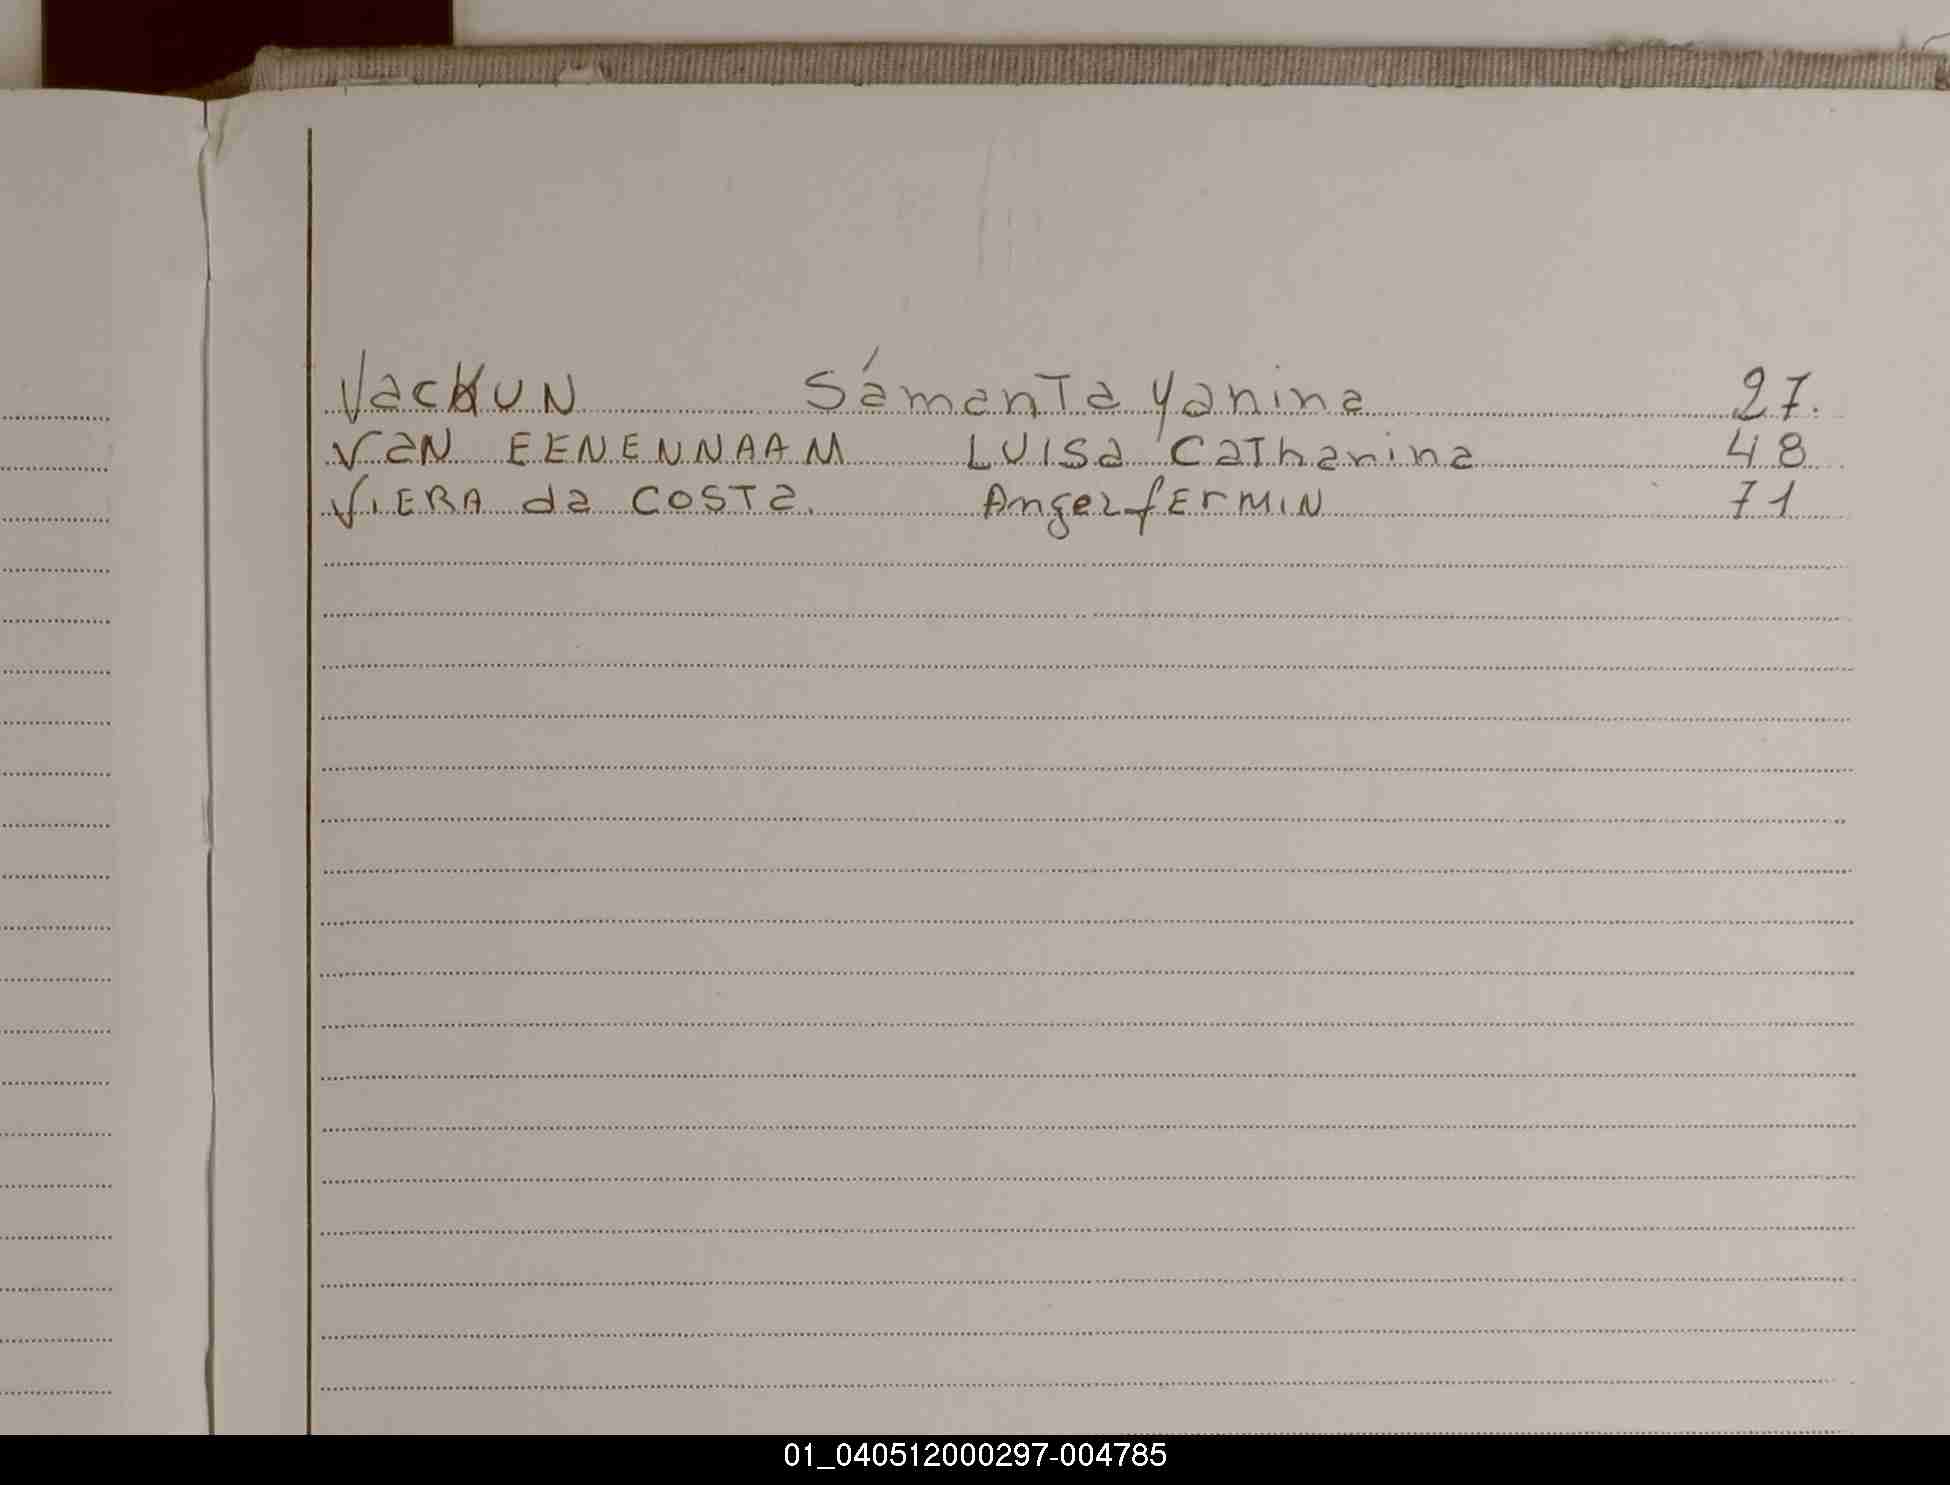 VackUN Sámanta Yanina 27.
VaN EENENNAAM LUISa Catharina 48
VIERA da COSTa. Angel fERMIN 71
01_040512000297-004785